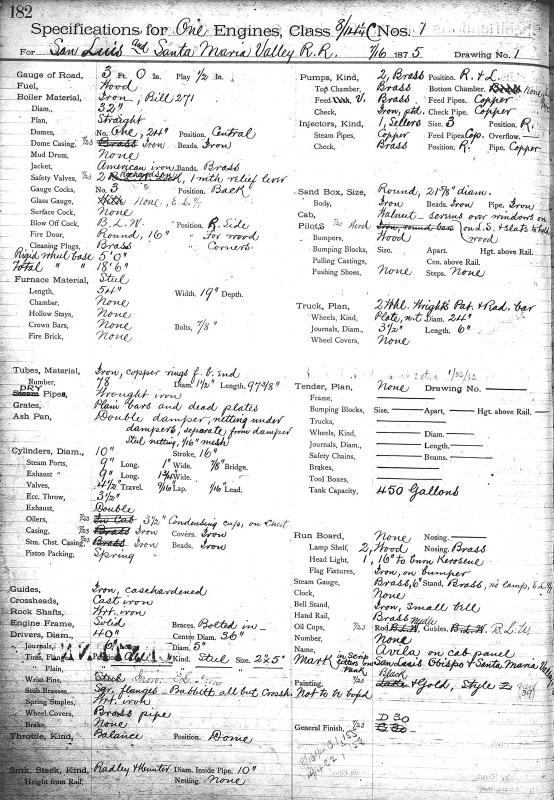 182
Specifications for One Engines, Class 8/12 1/4 C Nos. 1
For San Luis and Santa Maria Valley R.R. 7/16 1875 Drawing No. 1
Gauge of Road, 3 Ft. 0 In. Play 1/2 In.
Fuel, Wood
Boiler Material, Iron, Bill 271
Diam., 32"
Plan, Straight
Domes, No. One, 24" Position. Central
Dome Casing, 7/23 Brass Iron Beads. Iron
Mud Drum, None
Jacket, American iron Bands. Brass
Safety Valves, 7/23 2 Richardson, 1 with relief lever
Gauge Cocks, No. 3 Position. Back
Glass Gauge, With None, E.L.
Surface Cock, None
Blow Off Cock, B. L. W. Position. R. Side
Fire Door, Round, 16" For wood
Cleaning Plugs, Brass Corners
Rigid wheel base 5' 0"
Total " " 18' 6"
Furnace Material, Steel
Length, 54" Width. 19" Depth.
Chamber, None
Hollow Stays, None
Crown Bars, None Bolts, 7/8"
Fire Brick, None
Tubes, Material, Iron, copper rings f. b. end
Number, 78 Diam. 1 1/2" Length, 97 3/8"
DRY
Steam Pipes, Wrought iron
Grates, Plain bars and dead plates
Ash Pan, Double damper, netting under
dampers, separate from damper
Steel netting, 1/16" mesh
Cylinders, Diam., 10" Stroke, 16"
Steam Ports, 9" Long. 1" Wide. 7/8" Bridge.
Exhaust " 9" Long. 1 3/4" Wide.
Valves, 4 1/2" Travel. 9/16" Lap. 1/16" Lead.
Ecc. Throw, 3 1/2"
Exhaust, Double
Oilers, 7/23 In Cab 3 1/2" Condensing cup, on Chest
Casing, 7/23 Brass Iron Covers. Iron
Stm. Chst. Casing, 7/23 Brass Iron Beads, Iron
Piston Packing, Spring
Guides, Iron, casehardened
Crossheads, Cast iron
Rock Shafts, Wrt. iron
Engine Frame, Solid Braces. Bolted in
Drivers, Diam., 40" Centre Diam. 36"
Journals, 6" Diam. 5"
Tires, Flan. Kind. Steel Size 2 2/5"
" Plain,
Wrist Pins,
Stub Brasses, Sqr. flanges - Babbitt all but Crossh.
Spring Staples, Wrt. iron
Wheel Covers, Brass pipe
Brake, None
Throttle, Kind, Balance Position. Dome
Smk. Stack, Kind, Radley & Hunter Diam. Inside Pipe. 10"
Height from Rail, Netting. None
Pumps, Kind, 2, Brass Position. R. & L.
Top Chamber, Brass Bottom Chamber. Brass None
Feed V. Brass Feed Pipes. Copper
Check, Iron, ptd. Check Pipe. Copper
Injectors, Kind, 1, Sellers Size. 3 Position. R.
Steam Pipes, Copper Feed Pipes Cop. Overflow.
Check, Brass Position. R. Pipe. Copper
Sand Box, Size, Round, 21 5/8" diam.
Body, Iron Beads. Iron Pipe. Iron
Cab, Walnut - screws over windows on
Pilots 7/20 Wood Iron, round bars on L. S. & slats to hold
Bumpers, Wood wood
Bumping Blocks, Size. Apart, Hgt. above Rail.
Pulling Castings, Cen. above Rail.
Pushing Shoes, None Steps. None
Truck, Plan, 2 Whl. Wright's Pat. & Rad. bar
Wheels, Kind, Plate, w.t. Diam. 24"
Journals, Diam., 3 1/2" Length. 6"
Wheel Covers, None
Tender, Plan, None Drawing No.
Frame,
Bumping Blocks, Size. Apart, Hgt. above Rail.
Trucks,
Wheels, Kind, Diam.
Journals, Diam., Length.
Safety Chains, Beams.
Brakes,
Tool Boxes,
Tank Capacity, 450 Gallons
Run Board, None Nosing.
Lamp Shelf, 2, Wood Nosing. Brass
Head Light, 1, 16" to burn Kerosene
Flag Fixtures, Iron, on bumper
Steam Gauge, Brass, 6" Stand, Brass, no lamp, E.L.
Clock, None
Bell Stand, Iron, small bell
Hand Rail, Brass
Oil Cups, 7/23 Rod. B.L.W. needle Guides. B.L.W. B.L.W.
Number, None
Name, Avila on cab panel
Mark in Scrip letters on tank San Luis Obispo & Santa Maria Valley
Painting, 7/23 Lake Black & Gold, Style
Not to be boxed
General Finish, 7/23 D 30